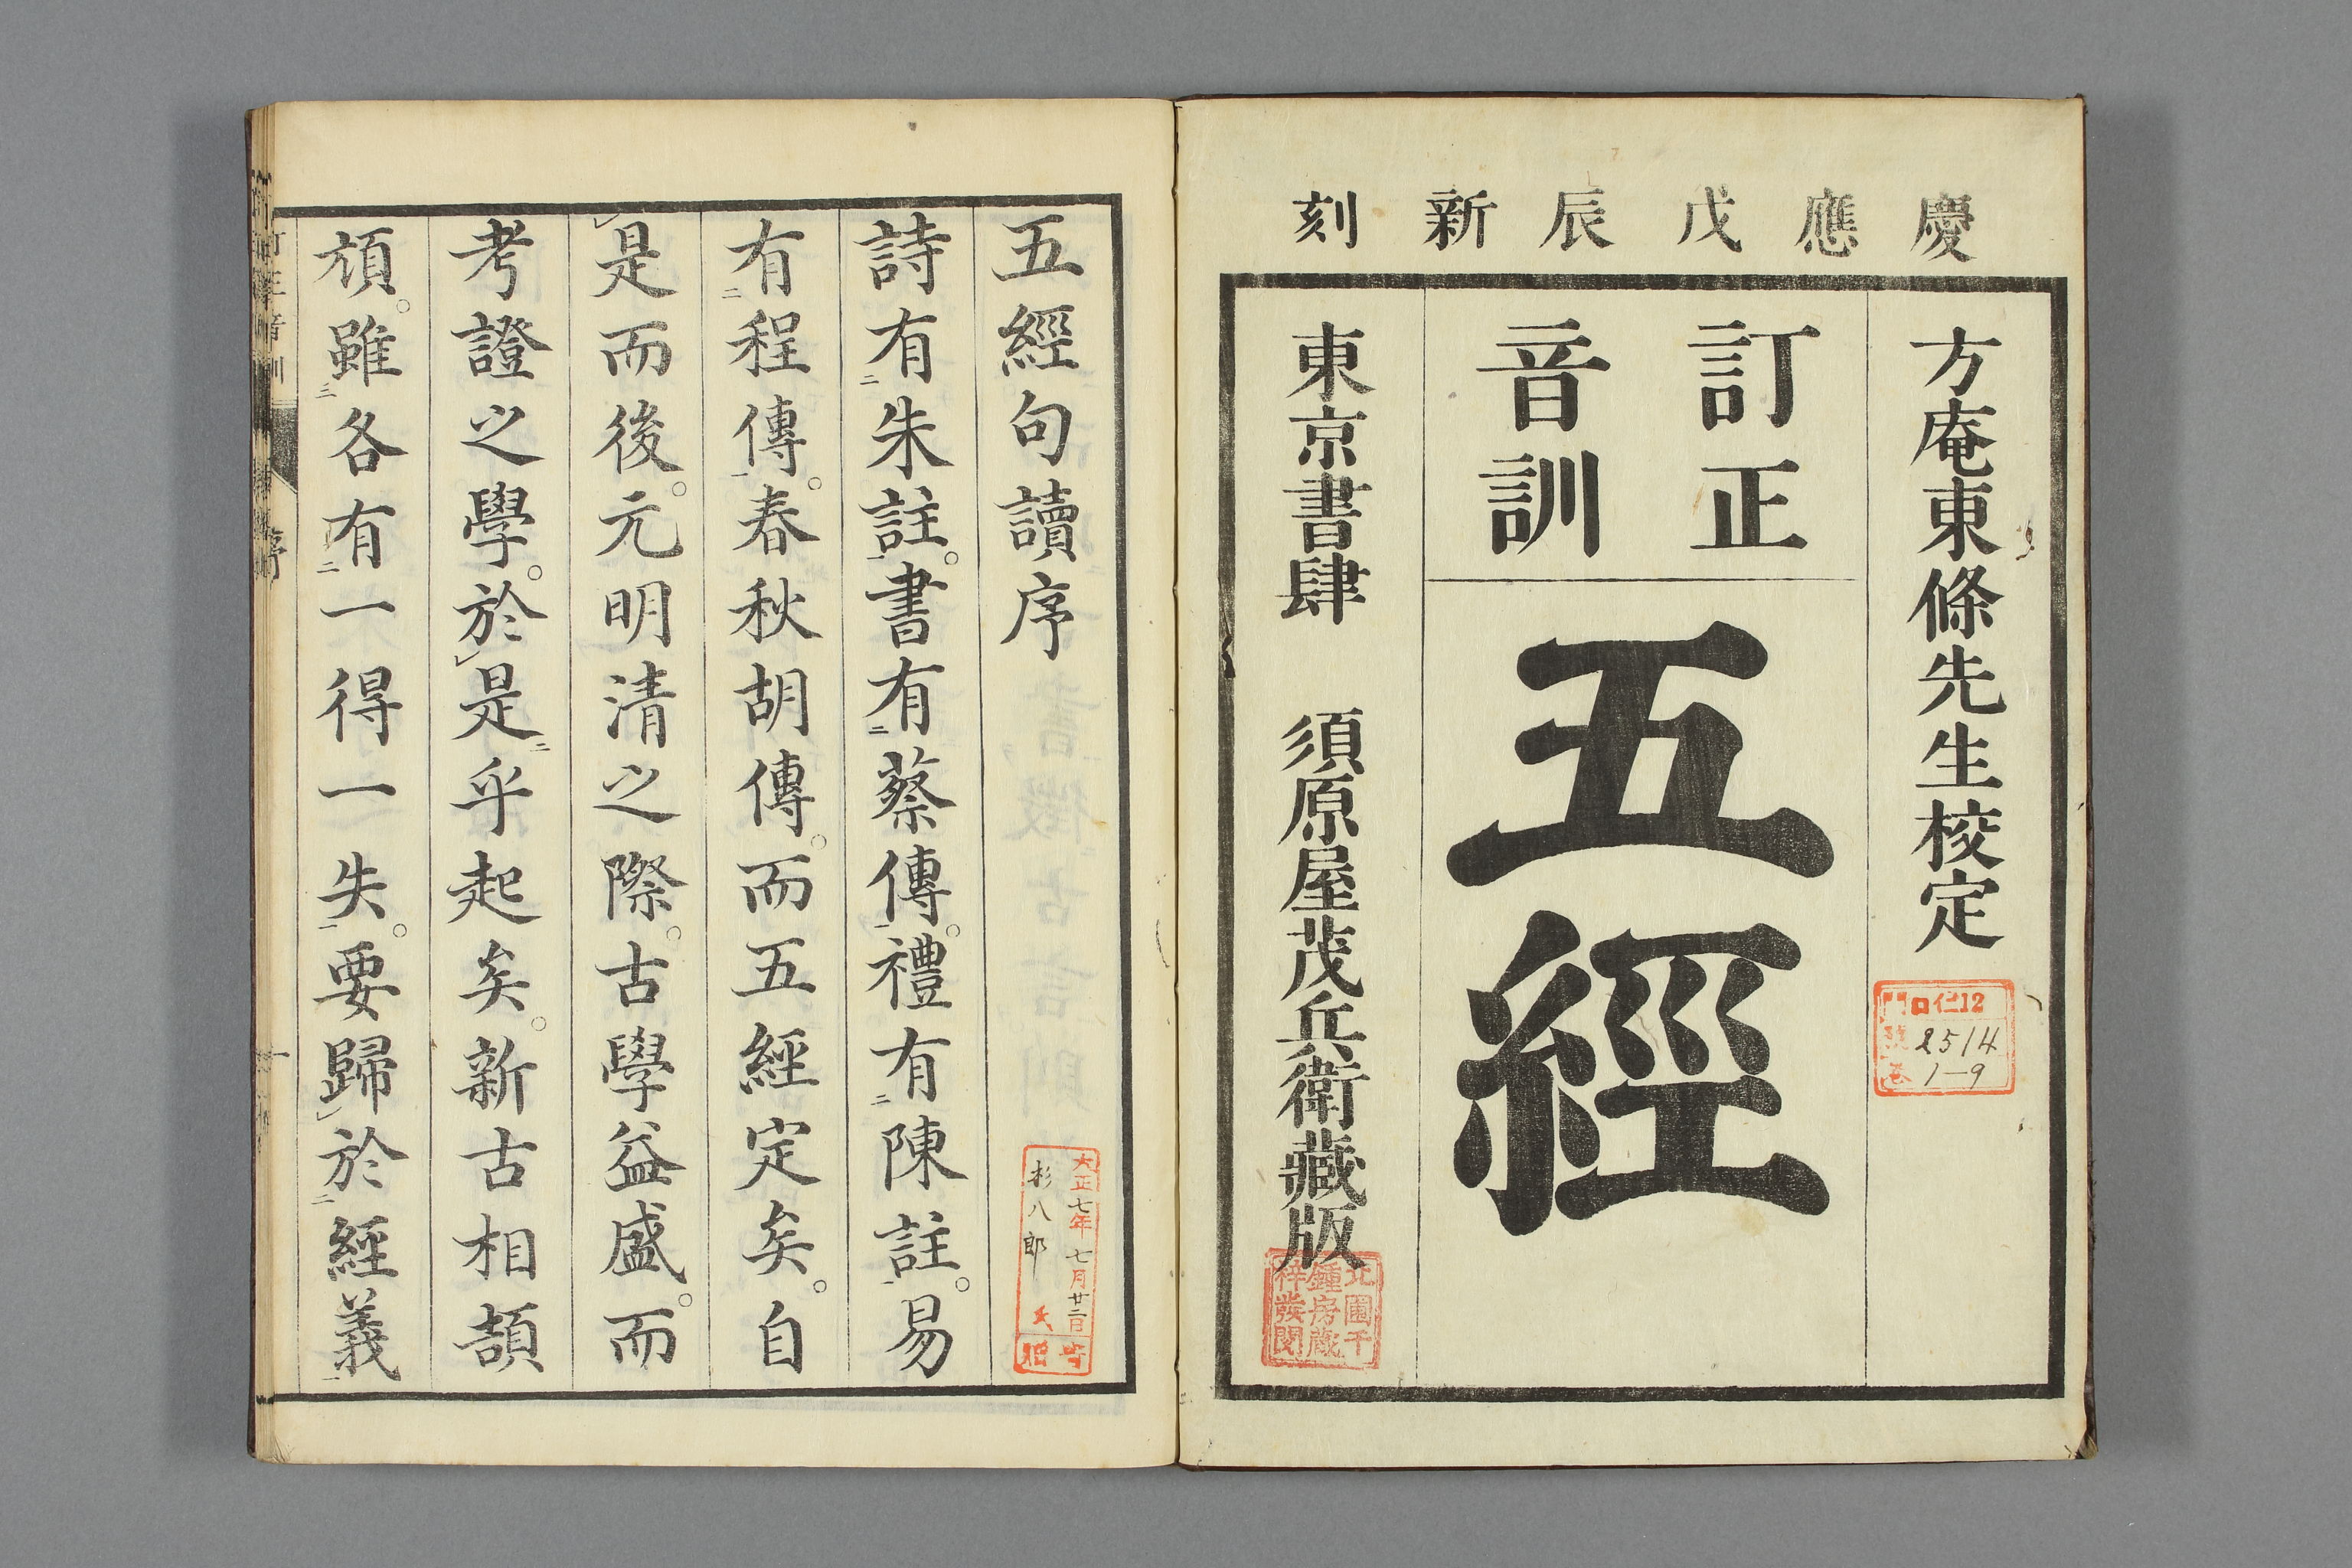 慶應戊辰新刻
方庵東條先生校定
訂正
音訓
五經
東京書肆 須原屋茂兵衛藏版
門 口仁12
號 2514
卷 1-9
五經句讀序
詩有二朱註一。書有二蔡傳一。禮有二陳註一。易
有二程傳一。春秋胡傳。而五經定矣。自
レ是而後。元明清之際。古學益盛。而
考證之學。於レ是二乎起矣。新古相頡
頏。雖三各有二一得一失一。要歸レ於二經義一
大正七年七月廿二日
杉八郎氏
寄贈
訂正音訓
序
一